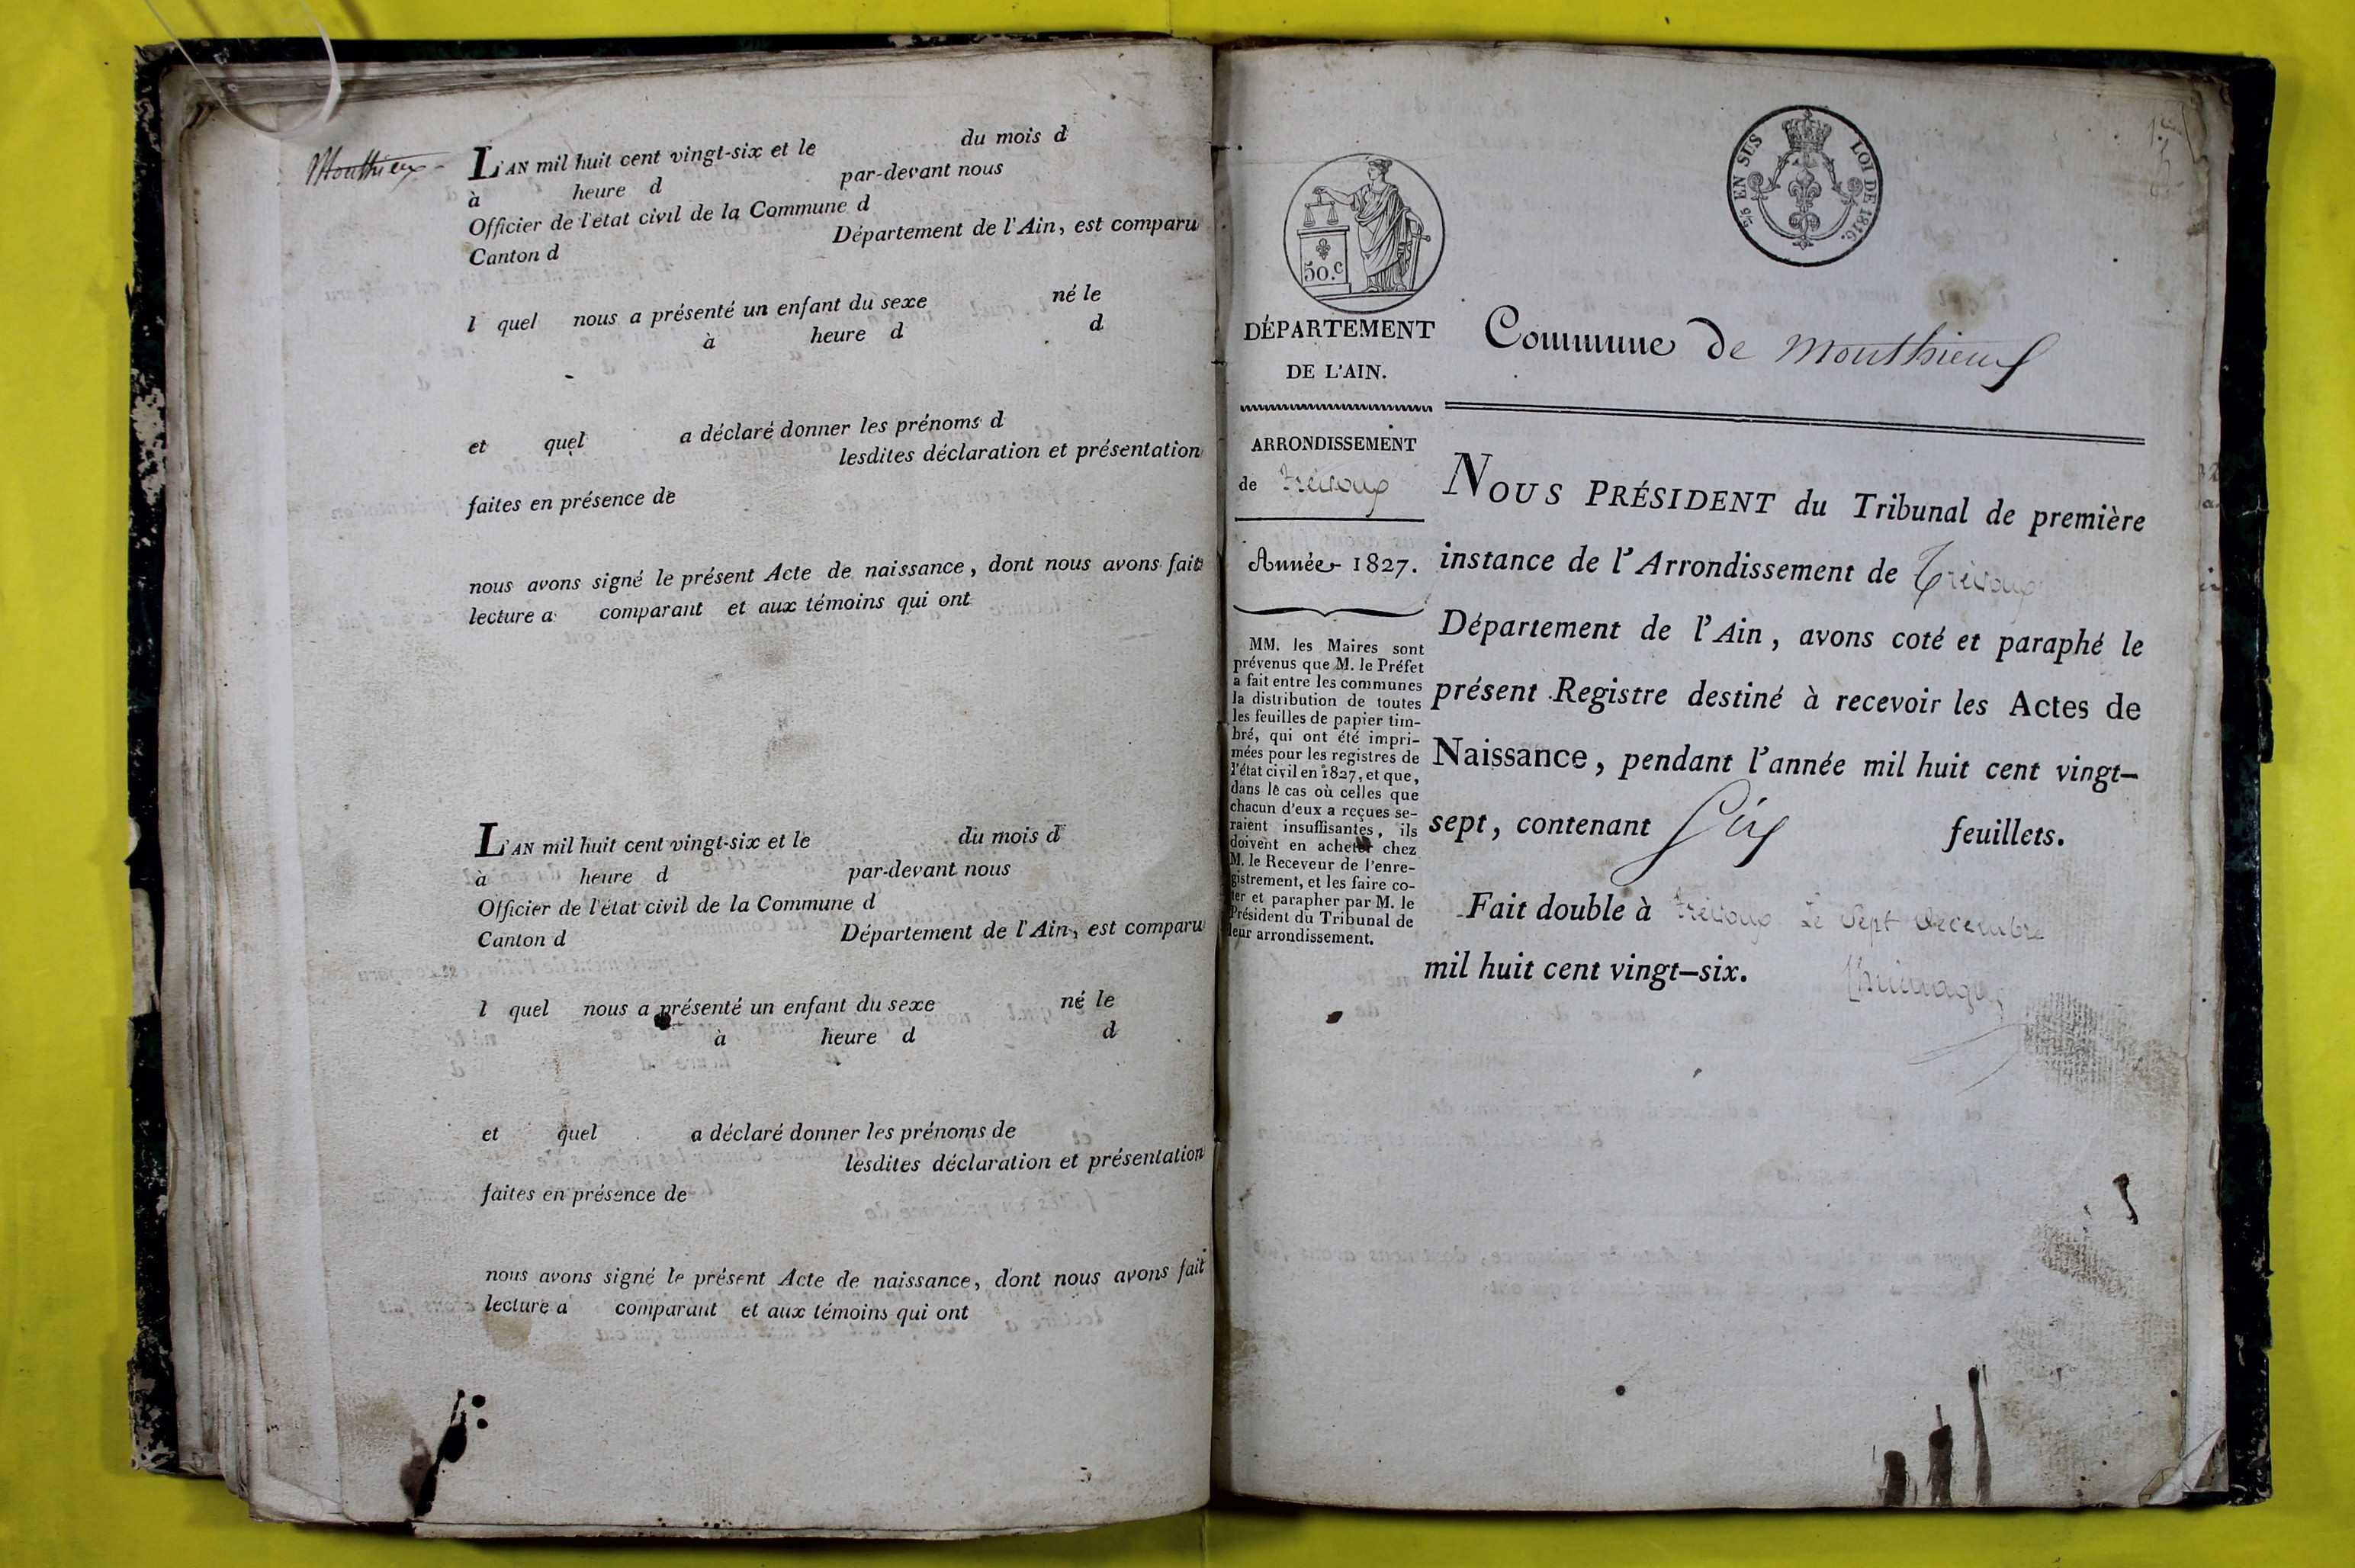 Monthieux
L'AN mil huit cent vingt-six et le du mois d
à heure d par-devant nous
Officier de l'état civil de la Commune d
Canton d Département de l'Ain, est comparu
l quel nous a présenté un enfant du sexe né le
à heure d d
et quel a déclaré donner les prénoms d
lesdites déclaration et présentation
faites en présence de
nous avons signé le présent Acte de naissance, dont nous avons fait
lecture a comparant et aux témoins qui ont
L'AN mil huit cent vingt-six et le du mois d
à heure d par-devant nous
Officier de l'état civil de la Commune d
Canton d Département de l'Ain, est comparu
l quel nous a présenté un enfant du sexe né le
à heure d d
et quel a déclaré donner les prénoms de
lesdites déclaration et présentation
faites en présence de
nous avons signé le présent Acte de naissance, dont nous avons fait
lecture a comparant et aux témoins qui ont
50.c
EN SUS
LOI DE 1816.
DÉPARTEMENT
DE L'AIN.
ARRONDISSEMENT
de Trévoux
Année 1827.
MM. les Maires sont
prévenus que M. le Préfet
a fait entre les communes
la distribution de toutes
les feuilles de papier tim-
bré, qui ont été impri-
mées pour les registres de
l'état civil en 1827, et que,
dans le cas où celles que
chacun d'eux a reçues se-
raient insuffisantes, ils
doivent en acheter chez
M. le Receveur de l'enre-
gistrement, et les faire co-
ter et parapher par M. le
Président du Tribunal de
leur arrondissement.
Commune de Monthieux
NOUS PRÉSIDENT du Tribunal de première
instance de l'Arrondissement de Trévoux
Département de l'Ain, avons coté et paraphé le
présent Registre destiné à recevoir les Actes de
Naissance, pendant l'année mil huit cent vingt-
sept, contenant Six feuillets.
Fait double à Trévoux Le Sept decembre
mil huit cent vingt-six.